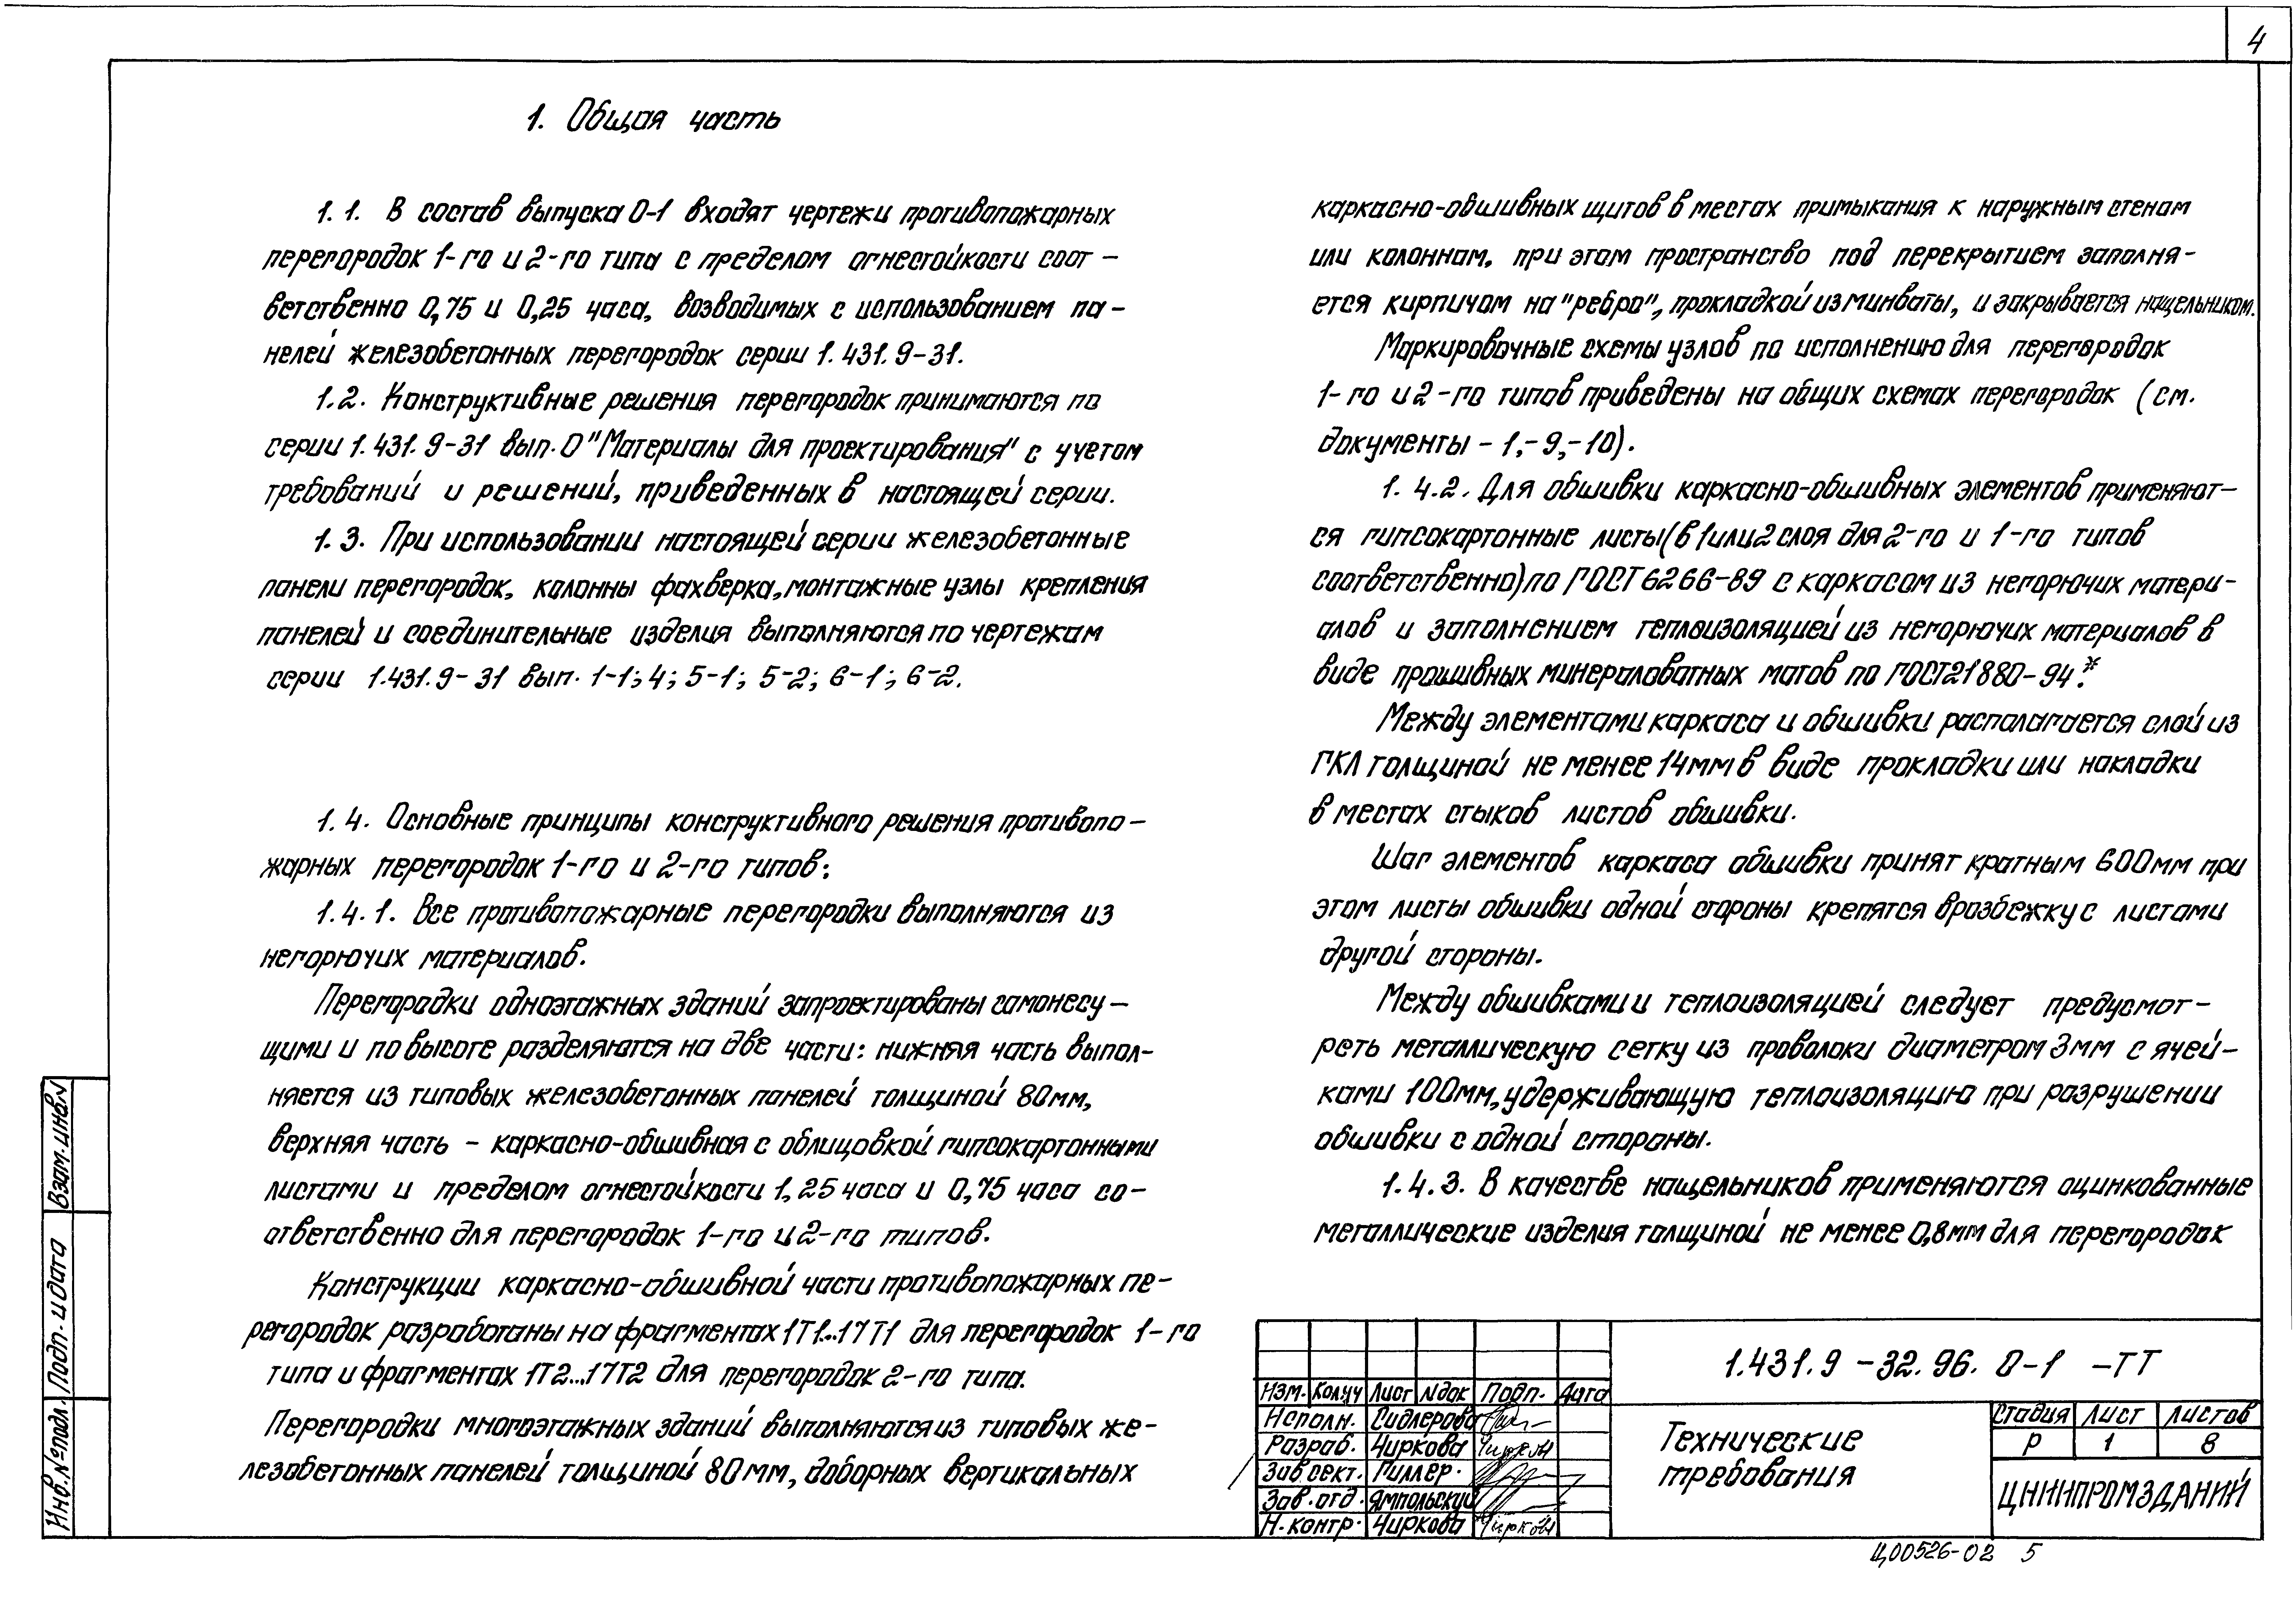 4
1. Общая часть
1.1. В состав выпуска 0-1 входят чертежи противопожарных
перегородок 1-го и 2-го типа с пределом огнестойкости соот-
ветственно 0,75 и 0,25 часа, возводимых с использованием па-
нелей железобетонных перегородок серии 1.431.9-31.
1.2. Конструктивные решения перегородок принимаются по
серии 1.431.9-31 вып.0 "Материалы для проектирования" с учетом
требований и решений, приведенных в настоящей серии.
1.3. При использовании настоящей серии железобетонные
панели перегородок, колонны фахверка, монтажные узлы крепления
панелей и соединительные изделия выполняются по чертежам
серии 1.431.9-31 вып. 1-1; 4; 5-1; 5-2; 6-1; 6-2.
1.4. Основные принципы конструктивного решения противопо-
жарных перегородок 1-го и 2-го типов:
1.4.1. Все противопожарные перегородки выполняются из
негорючих материалов.
Перегородки одноэтажных зданий запроектированы самонесу-
щими и по высоте разделяются на две части: нижняя часть выпол-
няется из типовых железобетонных панелей толщиной 80мм,
верхняя часть - каркасно-обшивная с облицовкой гипсокартонными
листами и пределом огнестойкости 1,25 часа и 0,75 часа со-
ответственно для перегородок 1-го и 2-го типов.
Конструкции каркасно-обшивной части противопожарных пе-
регородок разработаны на фрагментах 1Т1...17Т1 для перегородок 1-го
типа и фрагментах 1Т2...17Т2 для перегородок 2-го типа.
Перегородки многоэтажных зданий выполняются из типовых же-
лезобетонных панелей толщиной 80мм, доборных вертикальных
каркасно-обшивных щитов в местах примыкания к наружным стенам
или колоннам, при этом пространство под перекрытием заполня-
ется кирпичом на "ребро", прокладкой из минваты, и закрывается нащельником.
Маркировочные схемы узлов по исполнению для перегородок
1-го и 2-го типов приведены на общих схемах перегородок (см.
документы -1,-9,-10).
1.4.2. Для обшивки каркасно-обшивных элементов применяют-
ся гипсокартонные листы (в 1 или 2 слоя для 2-го и 1-го типов
соответственно) по ГОСТ 6266-89 с каркасом из негорючих матери-
алов и заполнением теплоизоляцией из негорючих материалов в
виде прошивных минераловатных матов по ГОСТ 21880-94*.
Между элементами каркаса и обшивки располагается слой из
ГКЛ толщиной не менее 14мм в виде прокладки или накладки
в местах стыков листов обшивки.
Шаг элементов каркаса обшивки принят кратным 600мм при
этом листы обшивки одной стороны крепятся вразбежку с листами
другой стороны.
Между обшивками и теплоизоляцией следует предусмот-
реть металлическую сетку из проволоки диаметром 3мм с ячей-
ками 100мм, удерживающую теплоизоляцию при разрушении
обшивки с одной стороны.
1.4.3. В качестве нащельников применяются оцинкованные
металлические изделия толщиной не менее 0,8мм для перегородок
Взам. инв.N
Подп. и дата
Инв. №подл.
1.431.9-32.96. 0-1 -ТТ
Изм. Кол.уч Лист Nдок Подп. Дата
Исполн. Сидлерова
Разраб. Чиркова Чиркова
Зав.сект. Гиллер.
Зав.отд. Ямпольский
Н.контр. Чиркова Чиркова
Технические
требования
Стадия Лист Листов
Р 1 8
ЦНИИПРОМЗДАНИЙ
Ц00526-02 5